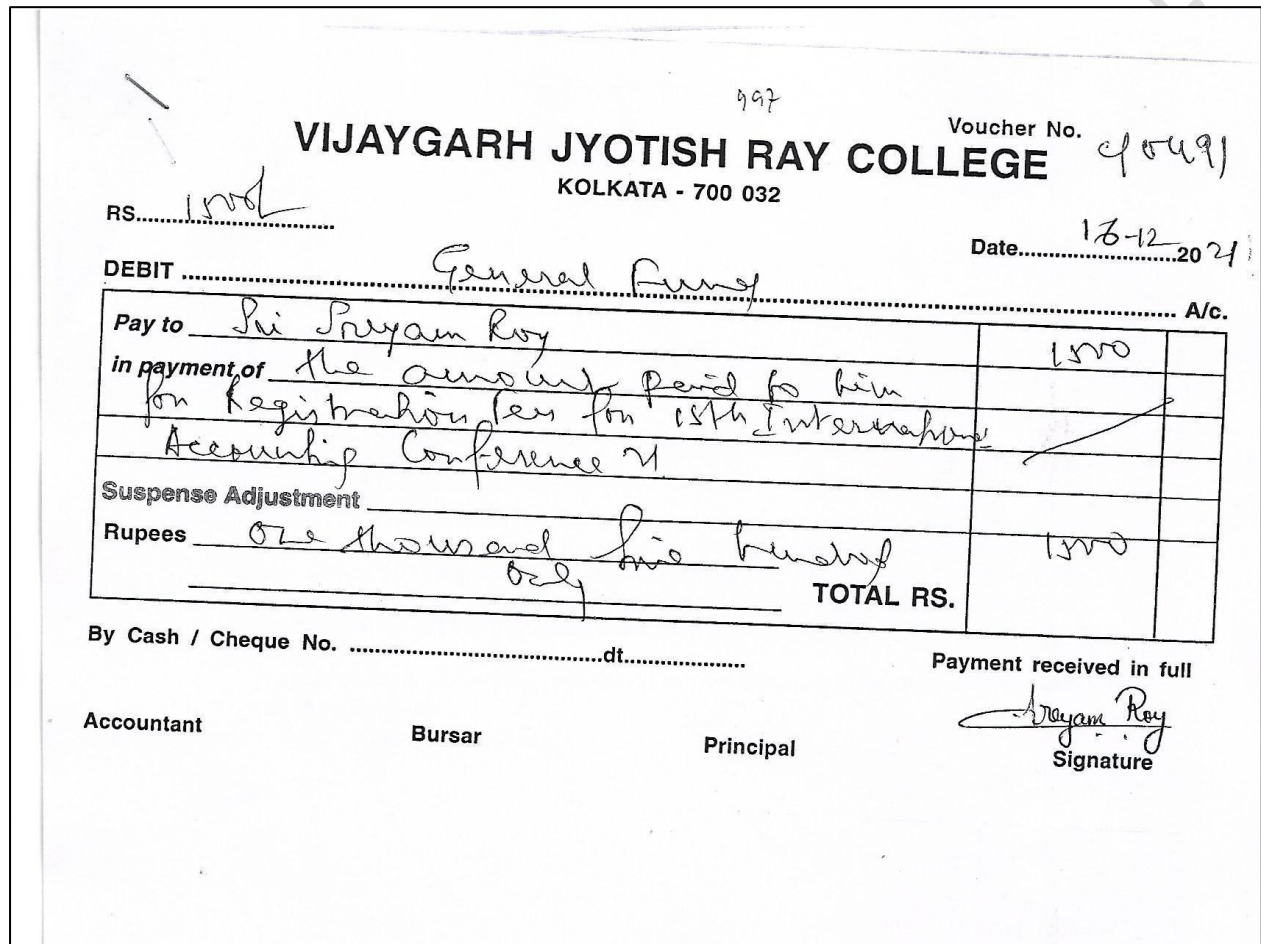 997
Voucher No. c/0491
VIJAYGARH JYOTISH RAY COLLEGE
KOLKATA - 700 032
RS. 1500/-
Date 16-12 2021
DEBIT General Fund A/c.
Pay to Sri Sreyam Roy 1500
in payment of the amount paid to him
for Registration fees for 15th International
Accounting Conference
Suspense Adjustment
Rupees One thousand five hundred 1500
Only TOTAL RS.
By Cash / Cheque No. dt.
Payment received in full
Sreyam Roy
Accountant Bursar Principal Signature